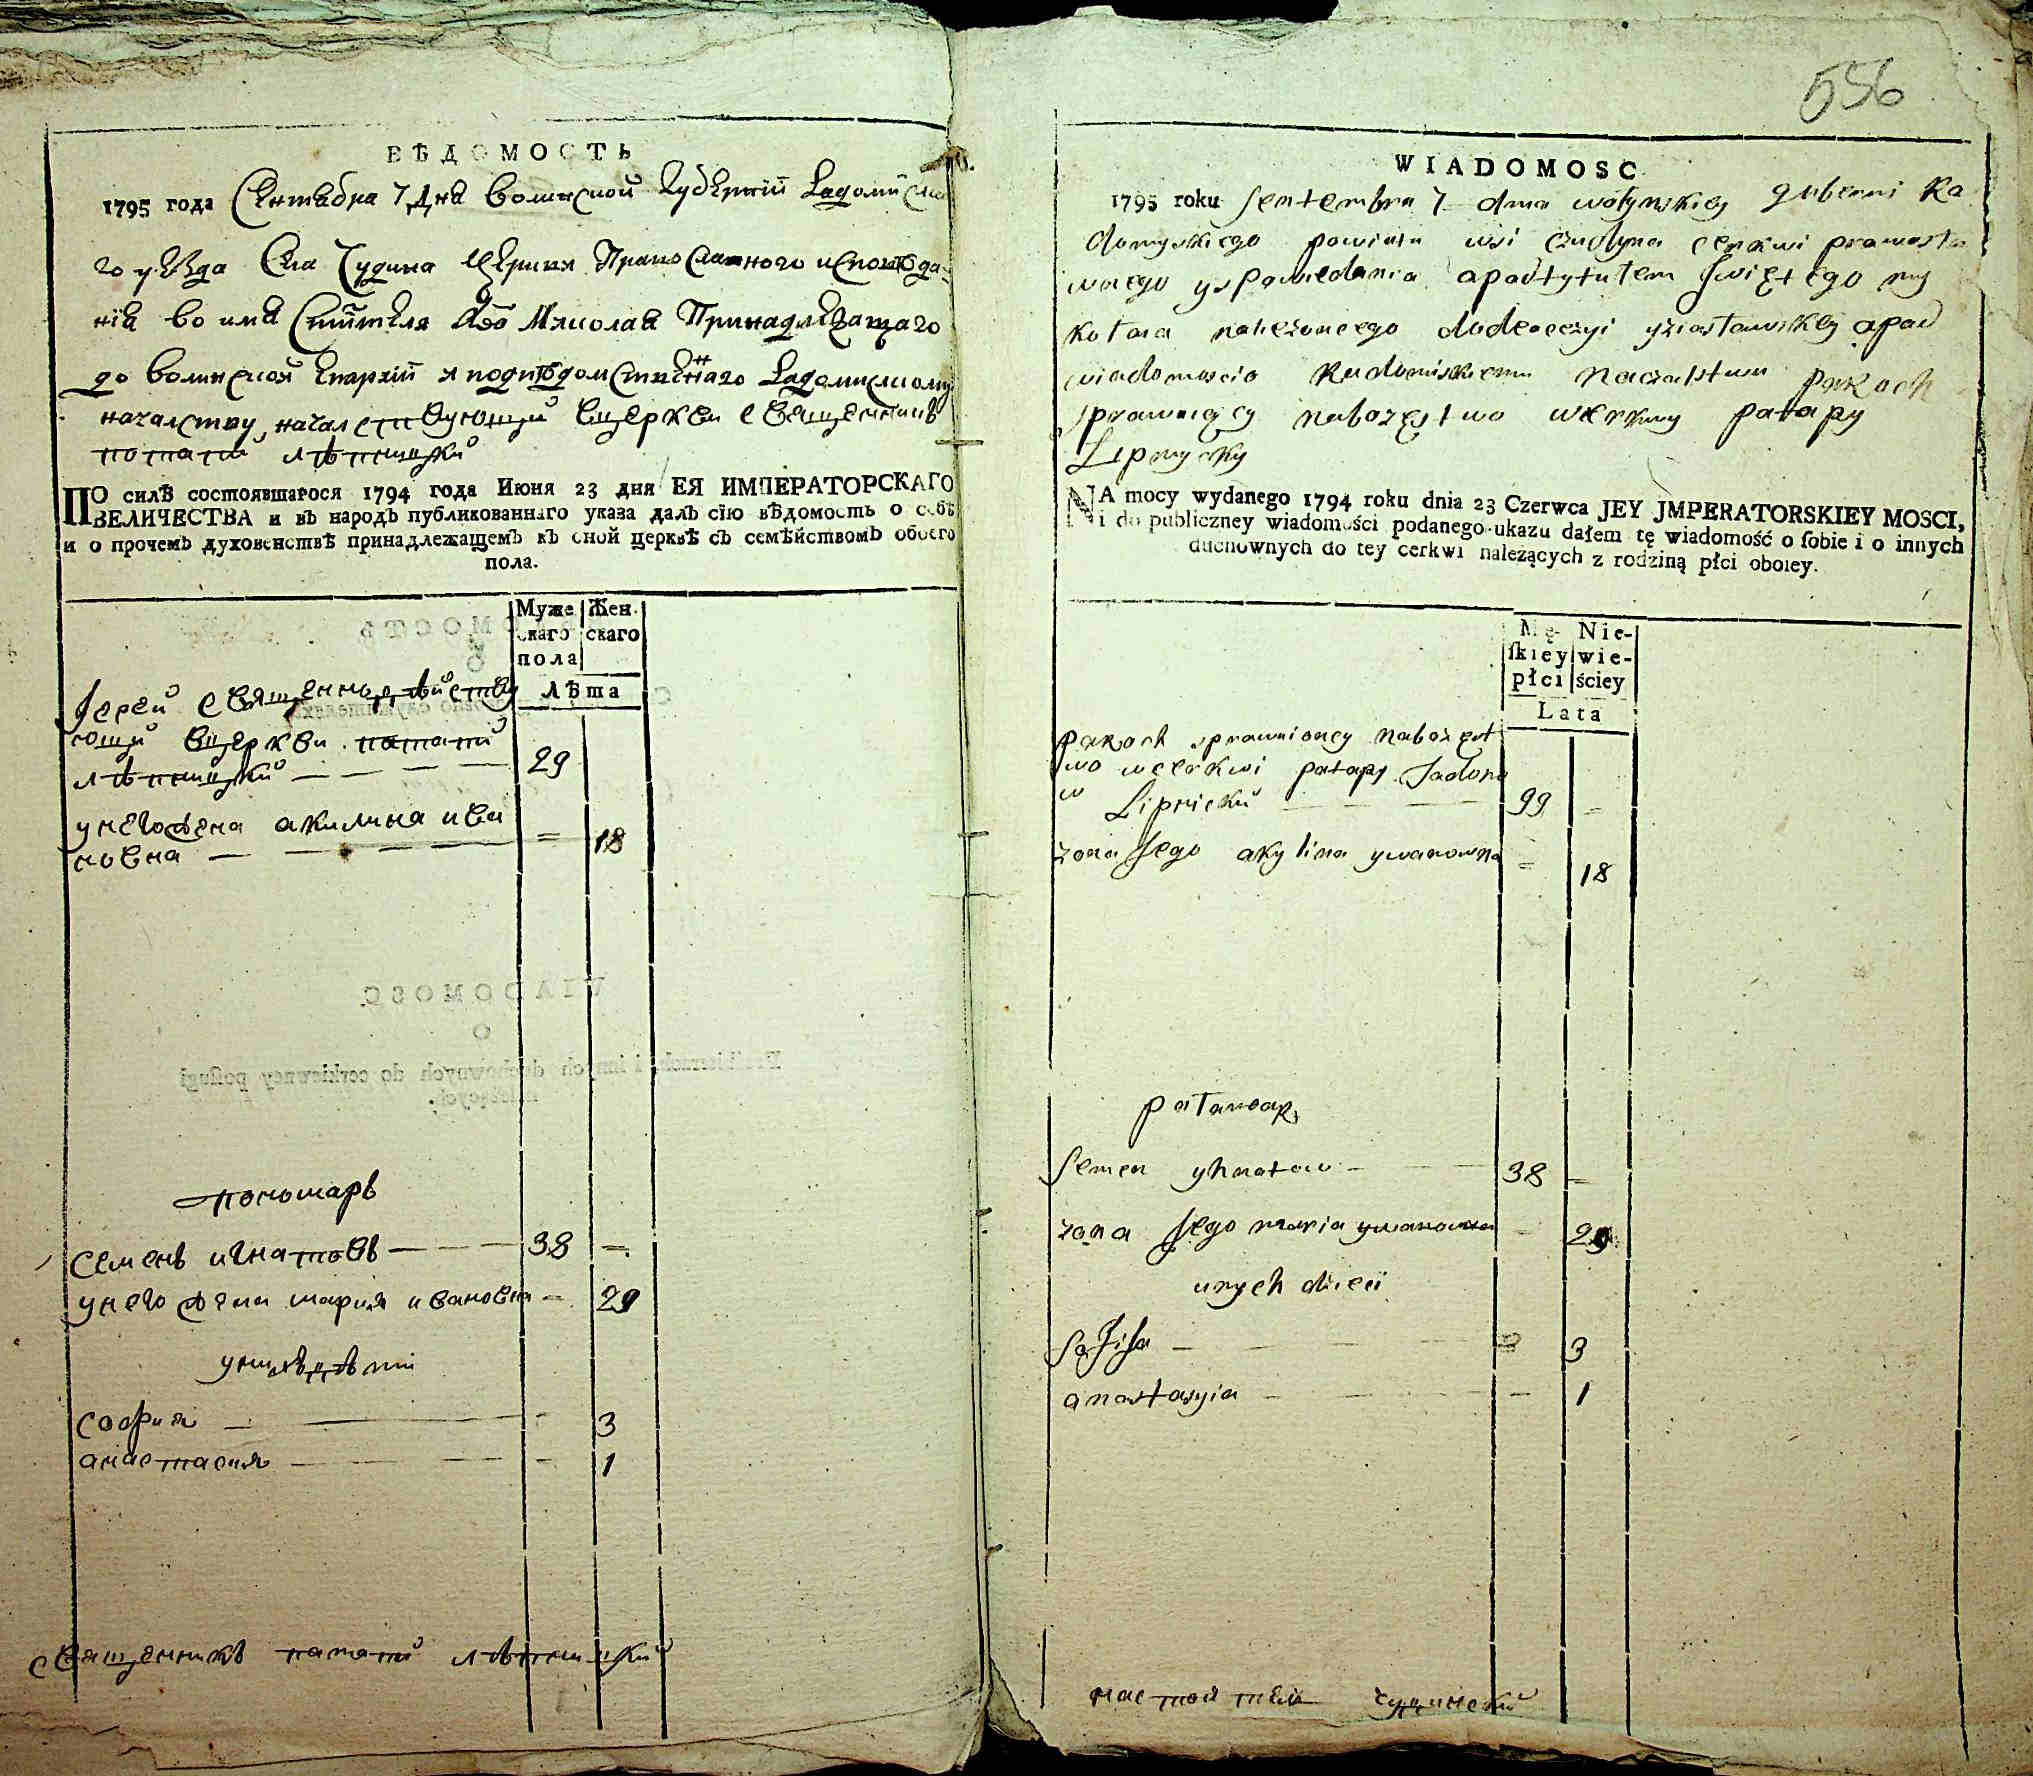 ВѢДОМОСТЬ
1795 года Сентабра 7 Дна волинской Губернїй Радомиска
го уезда Села Чудина Церкви Православного исповѣда-
нїа во има Николаа Принадлежащаго
до волинской Епархїй Радомислому
началству, началствующий вцеркви священникъ
потапи лѣпницкий
ПО силѣ состоявшагося 1794 года Июня 23 дня ЕЯ ИМПЕРАТОРСКАГО
ВЕЛИЧЕСТВА и въ народъ публикованнаго указа далъ сїю вѣдомость о себѣ
и о прочемъ духовенствѣ принадлежащемъ къ оной церквѣ съ семѣйствомъ обоего
пола.
Муже скаго пола
Жен скаго
Лѣта
Іерей священнодѣйству
ющи вцеркви потапи
лѣпницкий — — — — 29
унего жена акилина ива
новна — — — — = 18
пономарь
семенъ игнатовъ — — — 38 —
унего жена мария ивановна — 29
унихъ дѣти
софия — — — 3
анастасия — — — — 1
священникъ потапи лѣпницкий
556
WIADOMOSC
1795 roku Sentembra 7 dnia wołynskiey guberni Ra
domyskiego powiatu wsi czudyna cerkwi prawosła
wnego yspowiedania apodtytułem Swiętego my
kołaia należoncego dodeoeczyi apod
wiadomoscio Radomiskiemu naczalstwu paroch
sprawuięcy naboręstwo wcerkwy patapy
Lipnycky
NA mocy wydanego 1794 roku dnia 23 Czerwca JEY JMPERATORSKIEY MOSCI,
i do publiczney wiadomości podanego ukazu dałem tę wiadomość o ſobie i o innych
duchownych do tey cerkwi należących z rodziną płci oboiey.
Mę- ſkiey płci
Nie- wie- ściey
Lata
parock sprawuioncy naborzęst
wo wcerkwi patapy
Lipnicki — — — 99 —
zona Jego akylina ywanowna = 18
patamar
Semen yhnatow — — 38 —
zona Jego maria ywanowna — 29
unych dieci
Sofija — — — 3
anastasyia — — — — 1
настоятель чудинский